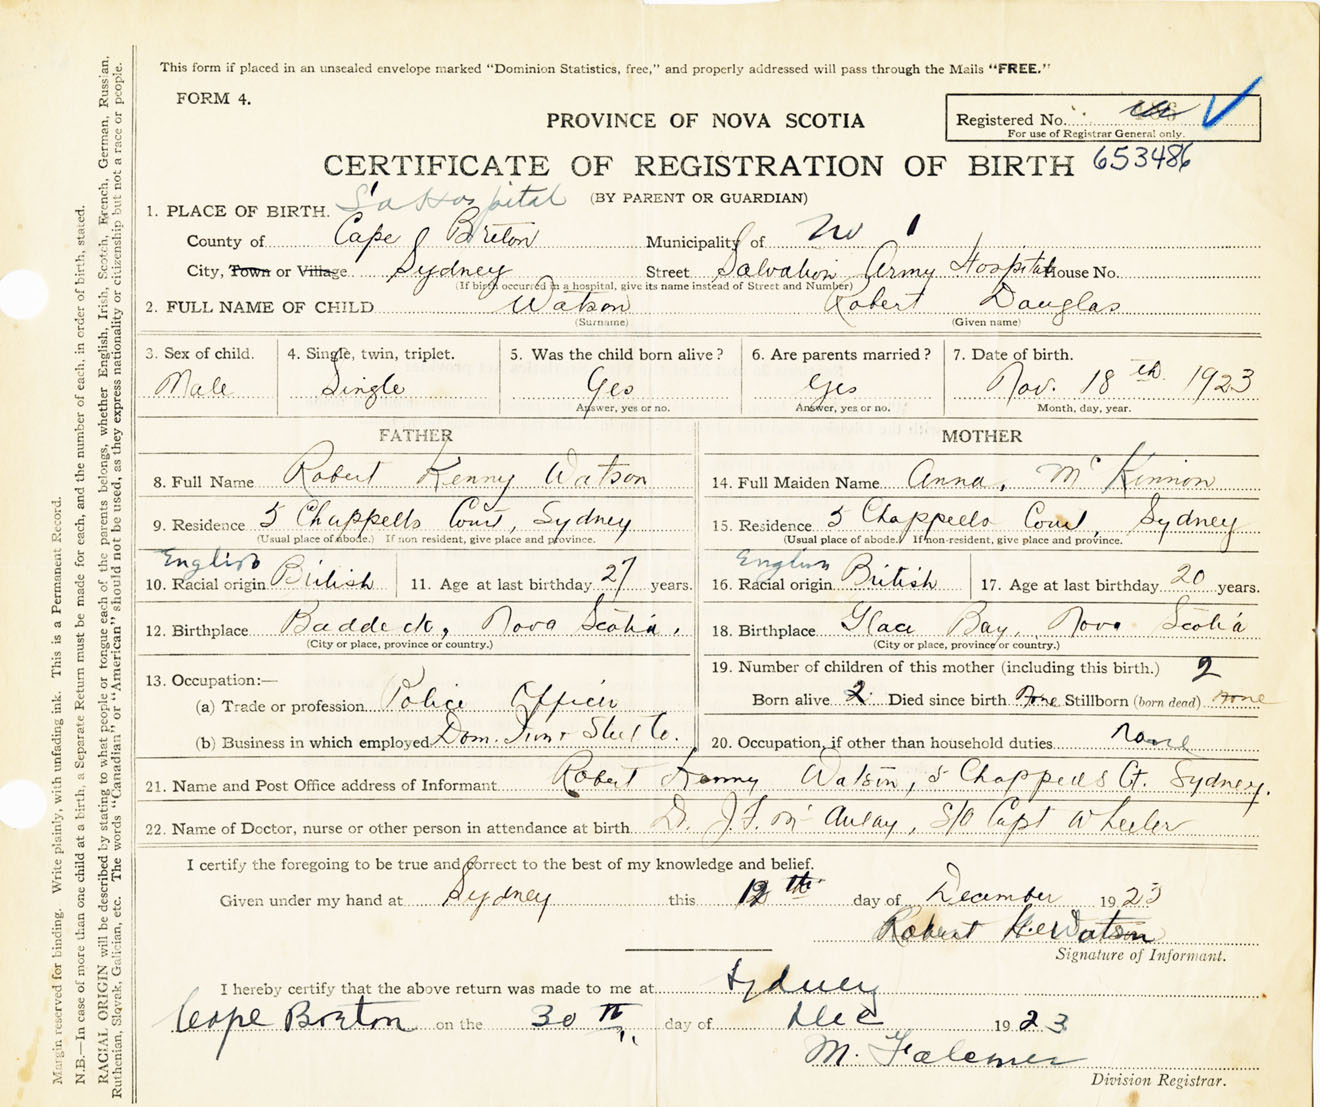 This form if placed in an unsealed envelope marked "Dominion Statistics, free," and properly addressed will pass through the Mails "FREE."
FORM 4.
PROVINCE OF NOVA SCOTIA
Registered No.
For use of Registrar General only.
CERTIFICATE OF REGISTRATION OF BIRTH 653486
(BY PARENT OR GUARDIAN)
1. PLACE OF BIRTH. Sa Hospital
County of Cape Breton Municipality of No 1
City, Town or Village Sydney Street Salvation Army Hospital House No.
(If birth occurred in a hospital, give its name instead of Street and Number)
2. FULL NAME OF CHILD Watson Robert Douglas
(Surname) (Given name)
3. Sex of child. 4. Single, twin, triplet. 5. Was the child born alive? 6. Are parents married? 7. Date of birth.
Male Single Yes Yes Nov. 18th 1923
Answer, yes or no. Answer, yes or no. Month, day, year.
FATHER MOTHER
8. Full Name Robert Kenny Watson 14. Full Maiden Name Anna, McKinnon
9. Residence 5 Chappells Court, Sydney 15. Residence 5 Chappells Court, Sydney
(Usual place of abode.) If non resident, give place and province. (Usual place of abode.) If non-resident, give place and province.
English English
10. Racial origin British 11. Age at last birthday 27 years. 16. Racial origin British 17. Age at last birthday 20 years.
12. Birthplace Baddeck, Nova Scotia. 18. Birthplace Glace Bay, Nova Scotia
(City or place, province or country.) (City or place, province or country.)
13. Occupation:— 19. Number of children of this mother (including this birth.) 2
(a) Trade or profession Police Officer Born alive 2 Died since birth None Stillborn (born dead) none
(b) Business in which employed Dom. Iron & Steel Co. 20. Occupation, if other than household duties none
21. Name and Post Office address of Informant Robert Kenny Watson, 5 Chappells Ct. Sydney.
22. Name of Doctor, nurse or other person in attendance at birth Dr. J.F. McAulay, S/O Capt Wheeler
I certify the foregoing to be true and correct to the best of my knowledge and belief.
Given under my hand at Sydney this 12th day of December 1923
Robert Watson
Signature of Informant.
I hereby certify that the above return was made to me at Sydney
Cape Breton on the 30th day of Dec 1923
M.
Division Registrar.
Margin reserved for binding. Write plainly, with unfading ink. This is a Permanent Record.
N.B.—In case of more than one child at a birth, a Separate Return must be made for each, and the number of each, in order of birth, stated.
RACIAL ORIGIN will be described by stating to what people or tongue each of the parents belongs, whether English, Irish, Scotch, French, German, Russian,
Ruthenian, Slovak, Galician, etc. The words "Canadian" or "American" should not be used, as they express nationality or citizenship but not a race or people.